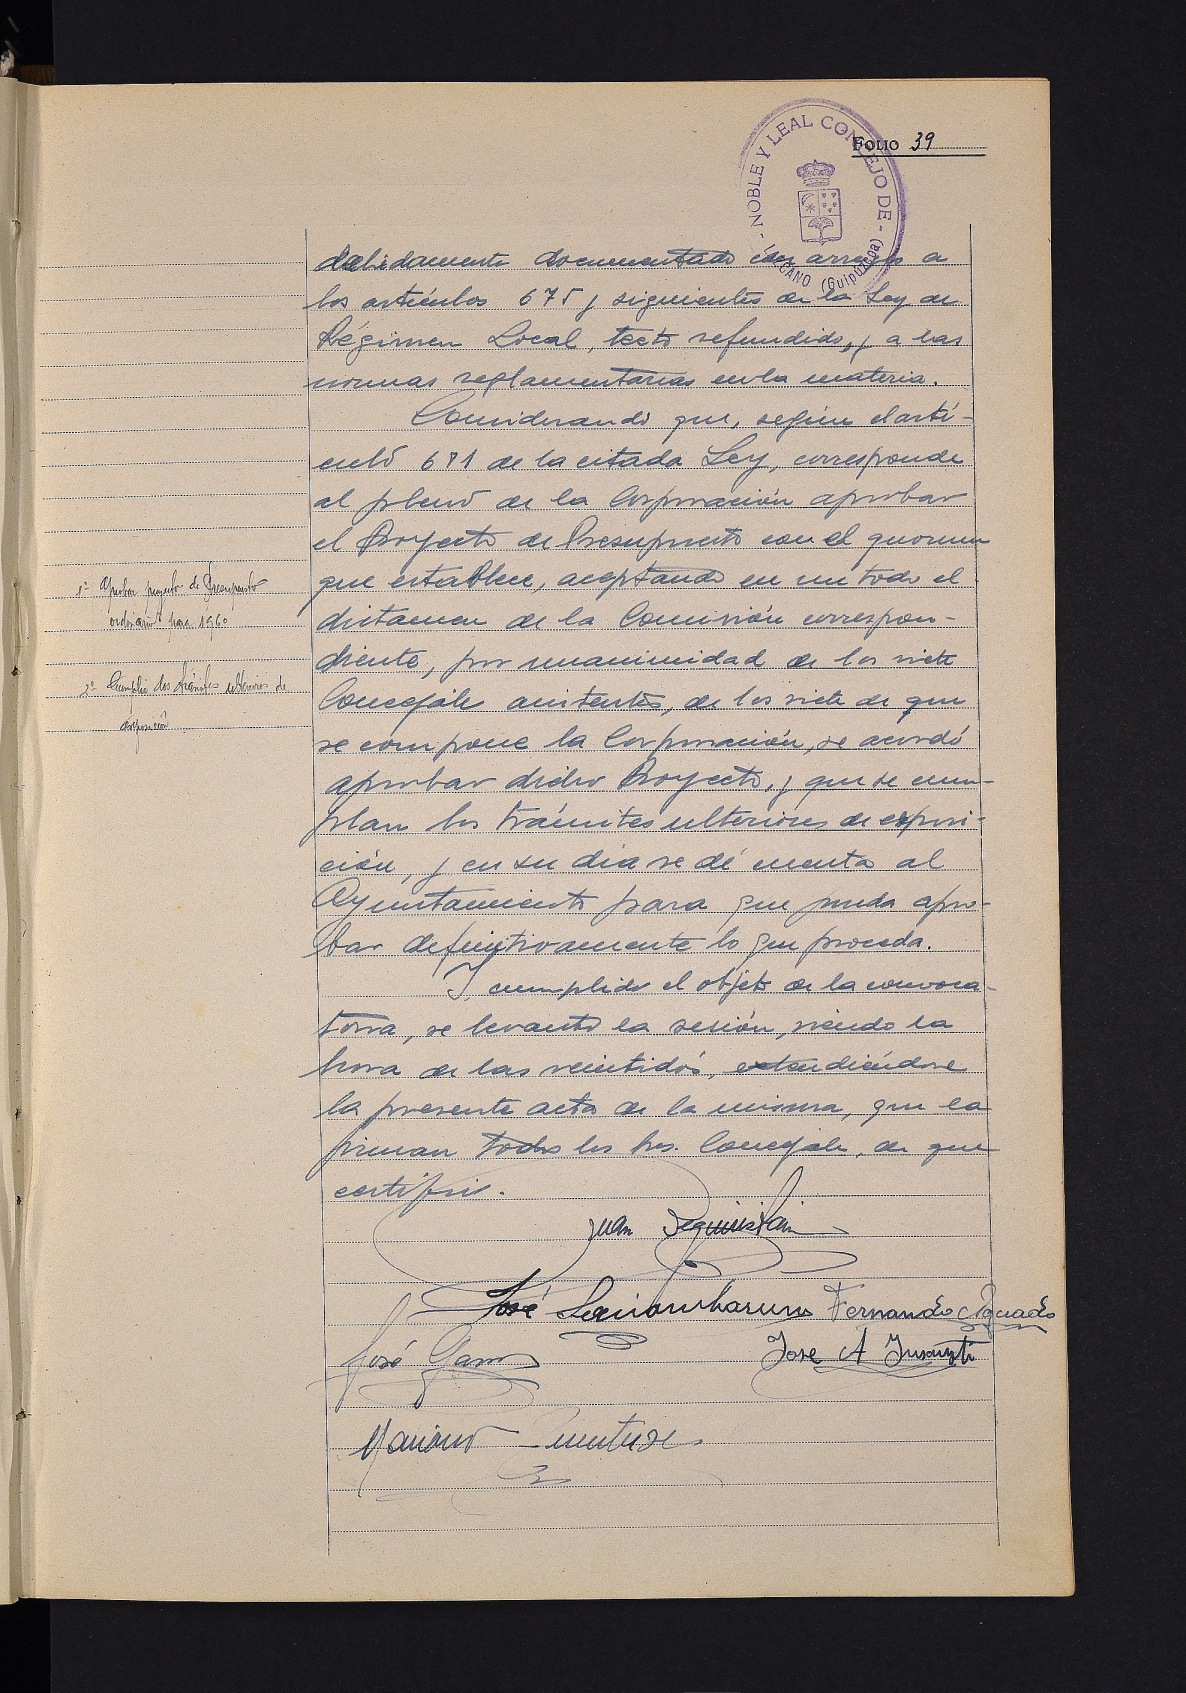 FOLIO 39
- NOBLE Y LEAL CONCEJO DE - LAZCANO (Guipúzcoa)
debidamente documentado con arreglo a
los artículos 675 y siguientes de la Ley de
Régimen Local, texto refundido, y a las
normas reglamentarias en la materia.
Considerando que, según el artí-
culo 681 de la citada Ley, corresponde
al pleno de la Corporación aprobar
el Proyecto de Presupuesto con el quorum
que establece, aceptando en un todo el
dictamen de la Comisión correspon-
diente, por unanimidad de los siete
Concejales asistentes, de los siete de que
se compone la Corporación, se acordó
aprobar dicho Proyecto, y que se cum-
plan los trámites ulteriores de exposi-
ción, y en su día se dé cuenta al
Ayuntamiento para que pueda apro-
bar definitivamente lo que proceda.
Y cumplido el objeto de la convoca-
toria, se levantó la sesión, siendo la
hora de las veintidós, extendiéndose
la presente acta de la misma, que la
firman todos los Sres. Concejales, de que
certifico.
1º Aprobar proyecto de Presupuesto
ordinario para 1960
2º Cumplir los trámites ulteriores de
exposición
Juan
José Fernando Aguado
José Jose A
Mariano